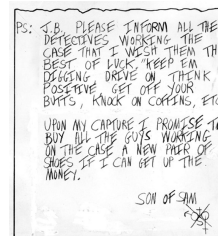 PS: J.B. PLEASE INFORM ALL THE
DETECTIVES WORKING THE
CASE THAT I WISH THEM TH
BEST OF LUCK. "KEEP EM
DIGGING, DRIVE ON, THINK
POSITIVE, GET OFF YOUR
BUTTS, KNOCK ON COFFINS, ETC
UPON MY CAPTURE I PROMISE TO
BUY ALL THE GUYS WORKING
ON THE CASE A NEW PAIR OF
SHOES IF I CAN GET UP THE
MONEY.
SON OF SAM